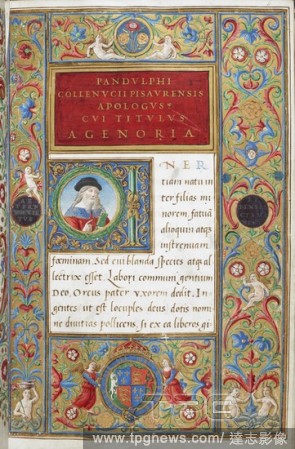 PANDVLPHI
COLLENVCII PISAVRENSIS
APOLOGVS
CVI TITVLVS
AGENORIA
I N E R
tiam natu in
ter filias mi
norem fatuā
alioquin atqȝ
instrenuam
fœminam, Sed blanda species atqȝ al
lectrix esset, Labori communi gentium
Deo, Orcus pater vxorem dedit. In-
gentes ut est locuples deus dotis nomi
ne diuitias pollicens, si ex ea liberes gi
TPG
www.tpgnews.com / 達志影像